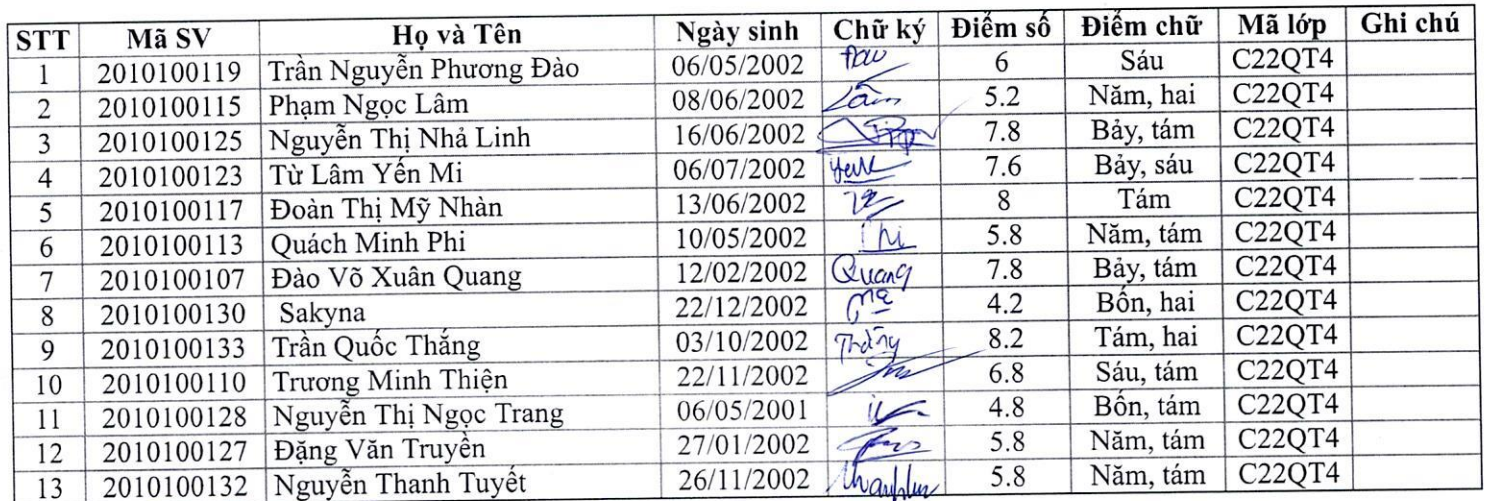 STT Mã SV Họ và Tên Ngày sinh Chữ ký Điểm số Điểm chữ Mã lớp Ghi chú
1 2010100119 Trần Nguyễn Phương Đào 06/05/2002 6 Sáu C22QT4
2 2010100115 Phạm Ngọc Lâm 08/06/2002 Lâm 5.2 Năm, hai C22QT4
3 2010100125 Nguyễn Thị Nhả Linh 16/06/2002 7.8 Bảy, tám C22QT4
4 2010100123 Từ Lâm Yến Mi 06/07/2002 7.6 Bảy, sáu C22QT4
5 2010100117 Đoàn Thị Mỹ Nhàn 13/06/2002 8 Tám C22QT4
6 2010100113 Quách Minh Phi 10/05/2002 Phi 5.8 Năm, tám C22QT4
7 2010100107 Đào Võ Xuân Quang 12/02/2002 Quang 7.8 Bảy, tám C22QT4
8 2010100130 Sakyna 22/12/2002 4.2 Bốn, hai C22QT4
9 2010100133 Trần Quốc Thắng 03/10/2002 Thắng 8.2 Tám, hai C22QT4
10 2010100110 Trương Minh Thiện 22/11/2002 6.8 Sáu, tám C22QT4
11 2010100128 Nguyễn Thị Ngọc Trang 06/05/2001 4.8 Bốn, tám C22QT4
12 2010100127 Đặng Văn Truyền 27/01/2002 5.8 Năm, tám C22QT4
13 2010100132 Nguyễn Thanh Tuyết 26/11/2002 5.8 Năm, tám C22QT4